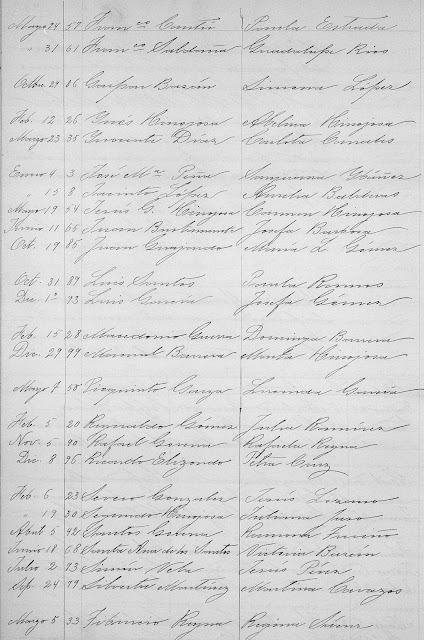 Mayo 24 57 Franco Cantú Paula Estrada
" 31 61 Franco Saldaña Guadalupe Rios
Octbe 29 86 Gaspar Bazán Simona López
Feb. 12 26 Inés Hinojosa Abelina Hinojosa
Marzo 23 35 Inocente Díaz Carlota Canales
Enero 4 3 José Ma Peña Ibáñez
" 15 8 Jacinto López Amalia Balderas
Mayo 19 54 Jesús G. Hinojosa Carmen Hinojosa
Junio 11 65 Juan Bustamante Josefa Barbosa
Oct. 19 85 Juan Guajardo María L. Gómez
Oct. 31 89 Luis Santos Paula Ramos
Dec. 1o 93 Luis García Josefa Gómez
Feb. 15 28 Macedonio Guerra Dominga Barrera
Dec. 29 99 Manuel Barrera Marta Hinojosa
Mayo 7 50 Garza Lucinda García
Feb. 5 20 Reynaldo Gómez Julia Ramírez
Nov. 5 90 Rafael Rafaela Reyna
Dic. 8 96 Ricardo Elizondo Petra Cruz
Feb. 6 23 Severo Gonzalez Jesús Lozano
" 19 30 Segundo Hinojosa Juliana
Abril 5 42 Santos Ramona Treviño
Junio 18 68 Santa Ana de los Santos Victoria Bazán
Julio 2 73 Simón Vela Jesús Pérez
Sep. 24 79 Silvestre Martínez Martina Cavazos
Marzo 5 33 Reyna Regina